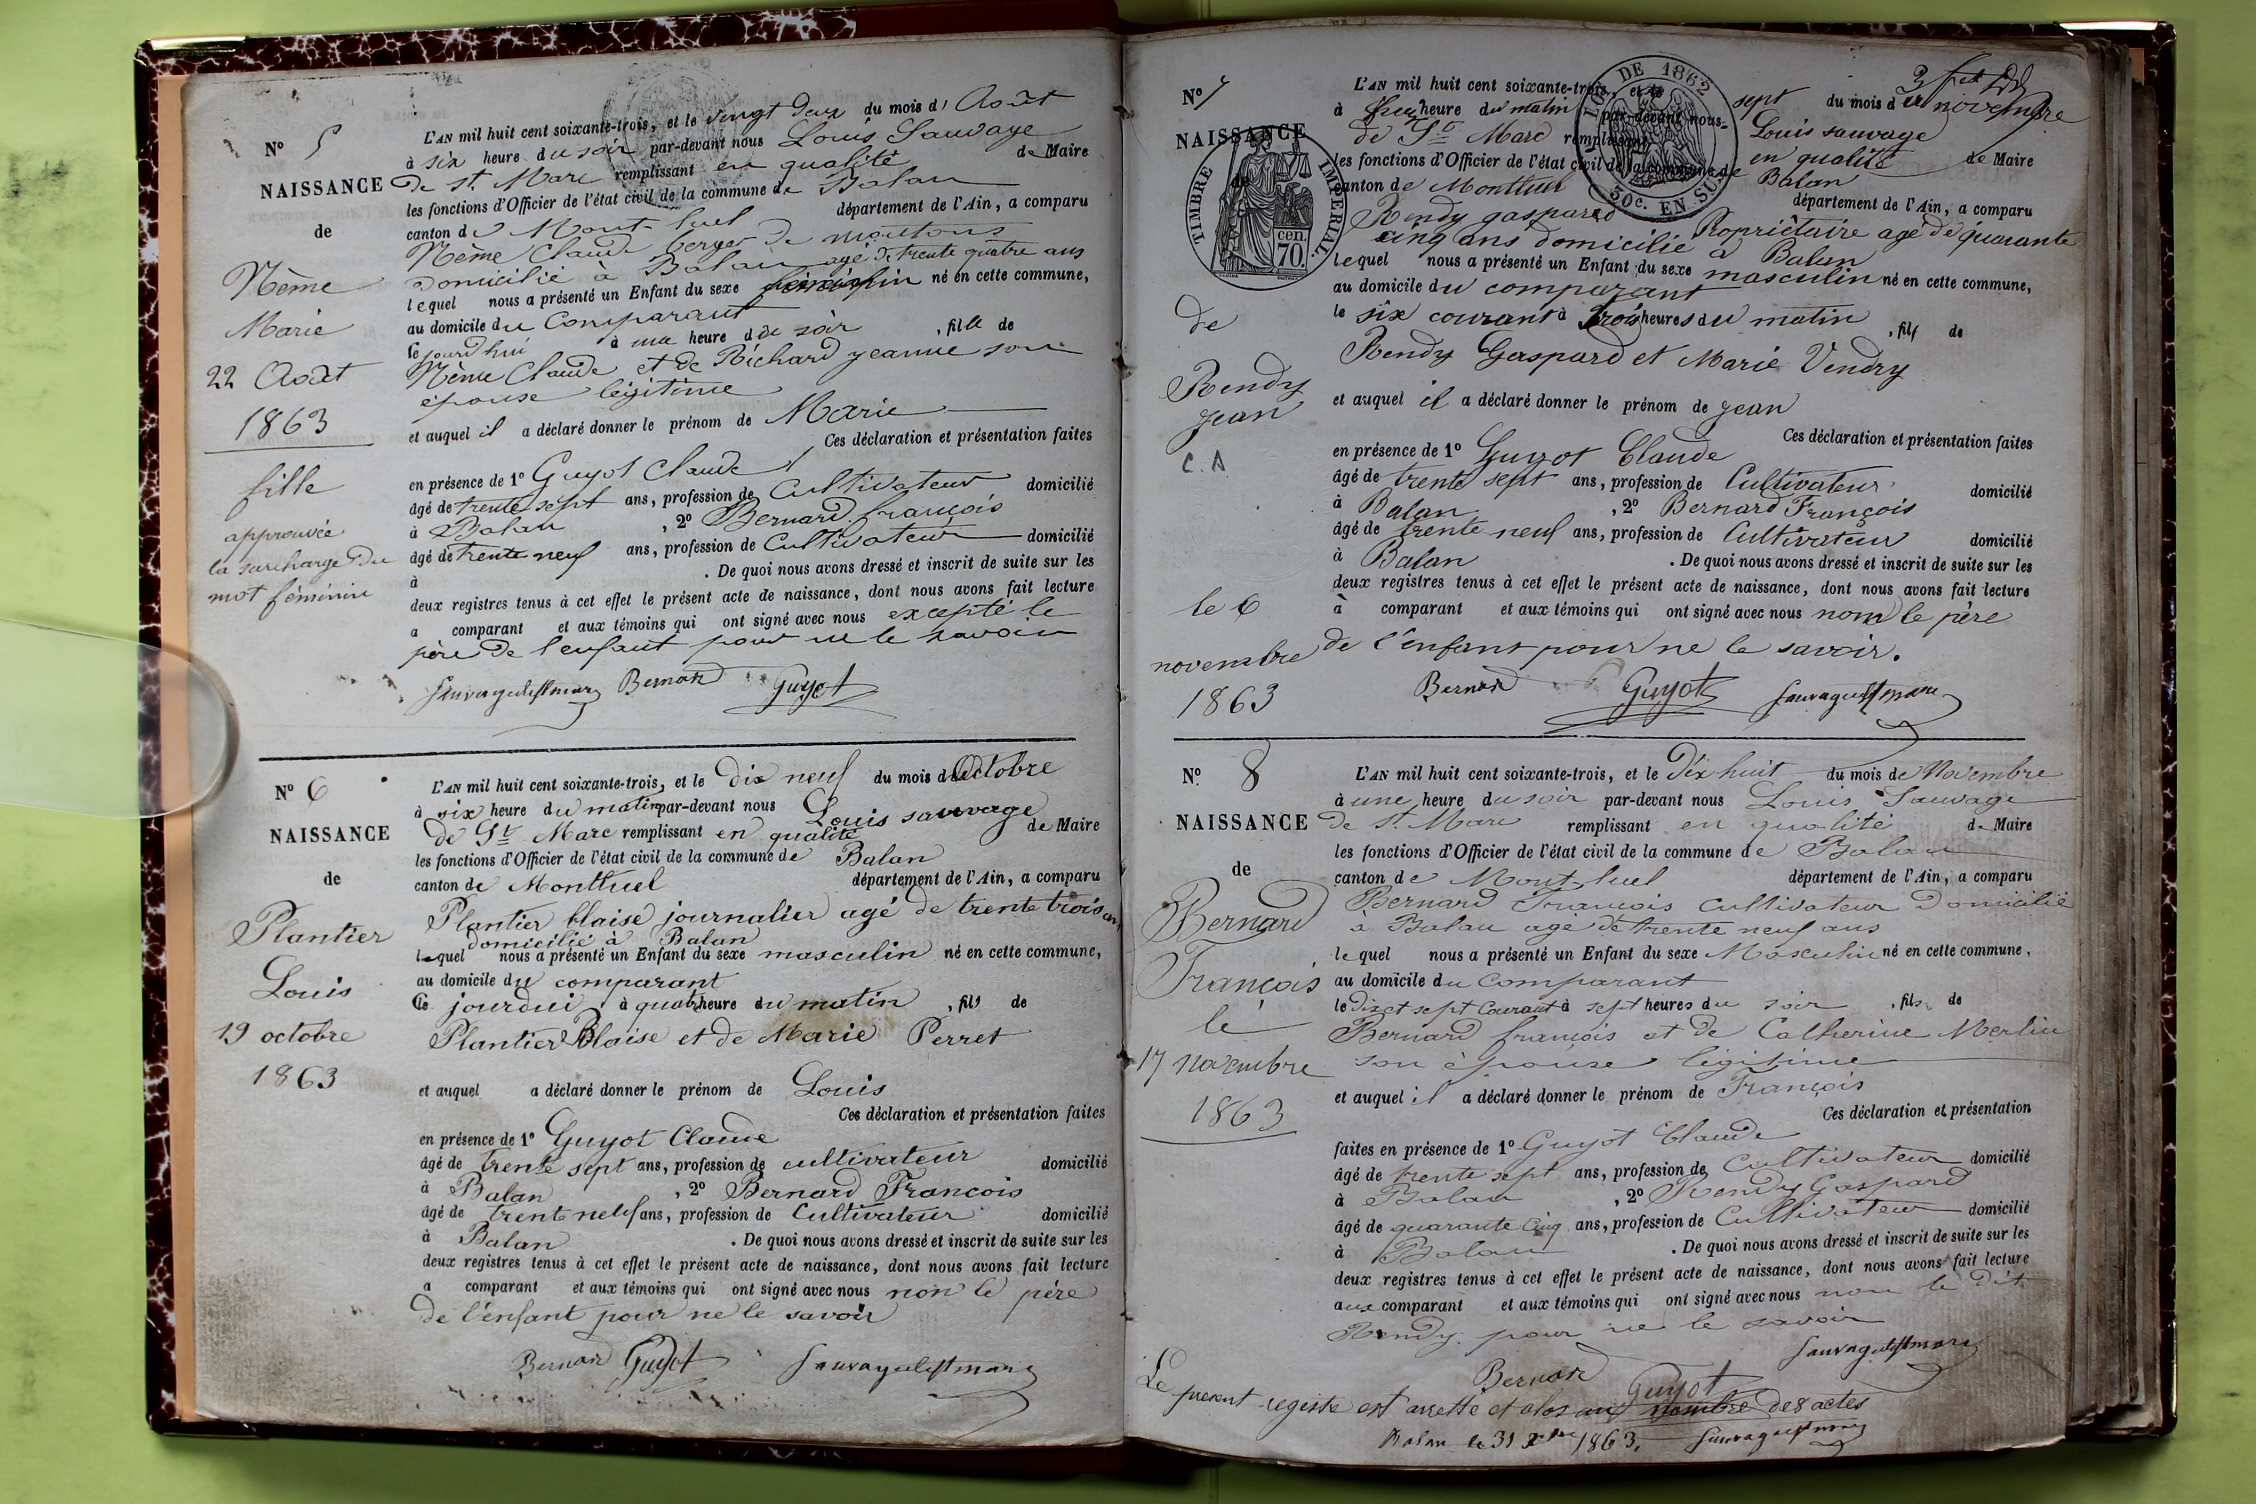 N° 5
NAISSANCE
de
Nème
Marie
22 Août
1863
fille
approuvée
la surcharge du
mot féminin
L'AN mil huit cent soixante-trois, et le vingt deux du mois d' Août
à six heure du soir par-devant nous Louis Sauvage
de St. Marc remplissant en qualité de Maire
les fonctions d'Officier de l'état civil de la commune de Balan
canton de Mont-luel département de l'Ain, a comparu
Nème Claude berger de moutons
domicilié à Balan agé de trente quatre ans
lequel nous a présenté un Enfant du sexe féminin né en cette commune,
au domicile du Comparant
le jourd'hui à une heure d de soir, fille de
Nème Claude et de Richard jeanne son
épouse légitime
et auquel il a déclaré donner le prénom de Marie
Ces déclaration et présentation faites
en présence de 1° Guyot Claude
âgé de trente sept ans, profession de Cultivateur domicilié
à Balan, 2° Bernard françois
âgé de trente neuf ans, profession de Cultivateur domicilié
à . De quoi nous avons dressé et inscrit de suite sur les
deux registres tenus à cet effet le présent acte de naissance, dont nous avons fait lecture
a comparant et aux témoins qui ont signé avec nous excepté le
père de l'enfant pour ne le savoir
Sauvagedestmarc Bernard Guyot
N° 6
NAISSANCE
de
Plantier
Louis
19 octobre
1863
L'AN mil huit cent soixante-trois, et le dix neuf du mois d'Octobre
à six heure du matin par-devant nous Louis sauvage
de St Marc remplissant en qualité de Maire
les fonctions d'Officier de l'état civil de la commune de Balan
canton de Montluel département de l'Ain, a comparu
Plantier blaise journalier agé de trente trois ans
domicilié à Balan
lequel nous a présenté un Enfant du sexe masculin né en cette commune,
au domicile du comparant
Ce jourdui à quatre heure du matin, fils de
Plantier Blaise et de Marie Perret
et auquel a déclaré donner le prénom de Louis
Ces déclaration et présentation faites
en présence de 1° Guyot Claude
âgé de trente sept ans, profession de cultivateur domicilié
à Balan, 2° Bernard François
âgé de trent neuf ans, profession de Cultivateur domicilié
à Balan . De quoi nous avons dressé et inscrit de suite sur les
deux registres tenus à cet effet le présent acte de naissance, dont nous avons fait lecture
a comparant et aux témoins qui ont signé avec nous non le père
de l'énfant pour ne le savoir
Bernard Guyot Sauvagedestmarc
N° 7
NAISSANCE
de
de
Rendy
jean
C. A
le 6
novembre
1863
TIMBRE IMPERIAL
cen. 70.
LOI DE 1862
50c. EN SUS
L'AN mil huit cent soixante-trois, et le sept du mois de novembre
à heure du matin par-devant nous Louis sauvage
de St Marc remplissant en qualité de Maire
les fonctions d'Officier de l'état civil de la commune de Balan
canton de Montluel département de l'Ain, a comparu
Rendy gaspard Propriétaire agé de quarante
cinq ans domicilié à Balan
lequel nous a présenté un Enfant du sexe masculin né en cette commune,
au domicile du comparant
le six courant à trois heures du matin, fils de
Rendy Gaspard et Marie Vendry
et auquel il a déclaré donner le prénom de jean
Ces déclaration et présentation faites
en présence de 1° Guyot Claude
âgé de trente sept ans, profession de Cultivateur domicilié
à Balan, 2° Bernard François
âgé de trente neuf ans, profession de Cultivateur domicilié
à Balan . De quoi nous avons dressé et inscrit de suite sur les
deux registres tenus à cet effet le présent acte de naissance, dont nous avons fait lecture
à comparant et aux témoins qui ont signé avec nous nom le père
de l'énfant pour ne le savoir.
Bernard Guyot Sauvagedestmarc
N° 8
NAISSANCE
de
Bernard
François
le
17 novembre
1863
L'AN mil huit cent soixante-trois, et le Dix huit du mois de Novembre
à une heure du soir par-devant nous Louis Sauvage
de St. Marc remplissant en qualité de Maire
les fonctions d'Officier de l'état civil de la commune de Balan
canton de Mont-luel département de l'Ain, a comparu
Bernard François Cultivateur Domicilié
à Balan agé de trente neuf ans
lequel nous a présenté un Enfant du sexe Masculin né en cette commune,
au domicile du Comparant
le Dix et sept Courant à sept heures du soir, fils de
Bernard françois et de Catherine Merlin
son épouse légitime
et auquel il a déclaré donner le prénom de François
Ces déclaration et présentation
faites en présence de 1° Guyot Claude
âgé de trente sept ans, profession de Cultivateur domicilié
à Balan, 2° Rendy Gaspard
âgé de quarante Cinq ans, profession de Cultivateur domicilié
à Balan . De quoi nous avons dressé et inscrit de suite sur les
deux registres tenus à cet effet le présent acte de naissance, dont nous avons fait lecture
aux comparant et aux témoins qui ont signé avec nous non le dit
Rendy pour ne le savoir
Sauvagedestmarc
Bernard Guyot
Le present registre est arretté et clos au nombre de 8 actes
Balan le 31 Xbre 1863. Sauvagedestmarc